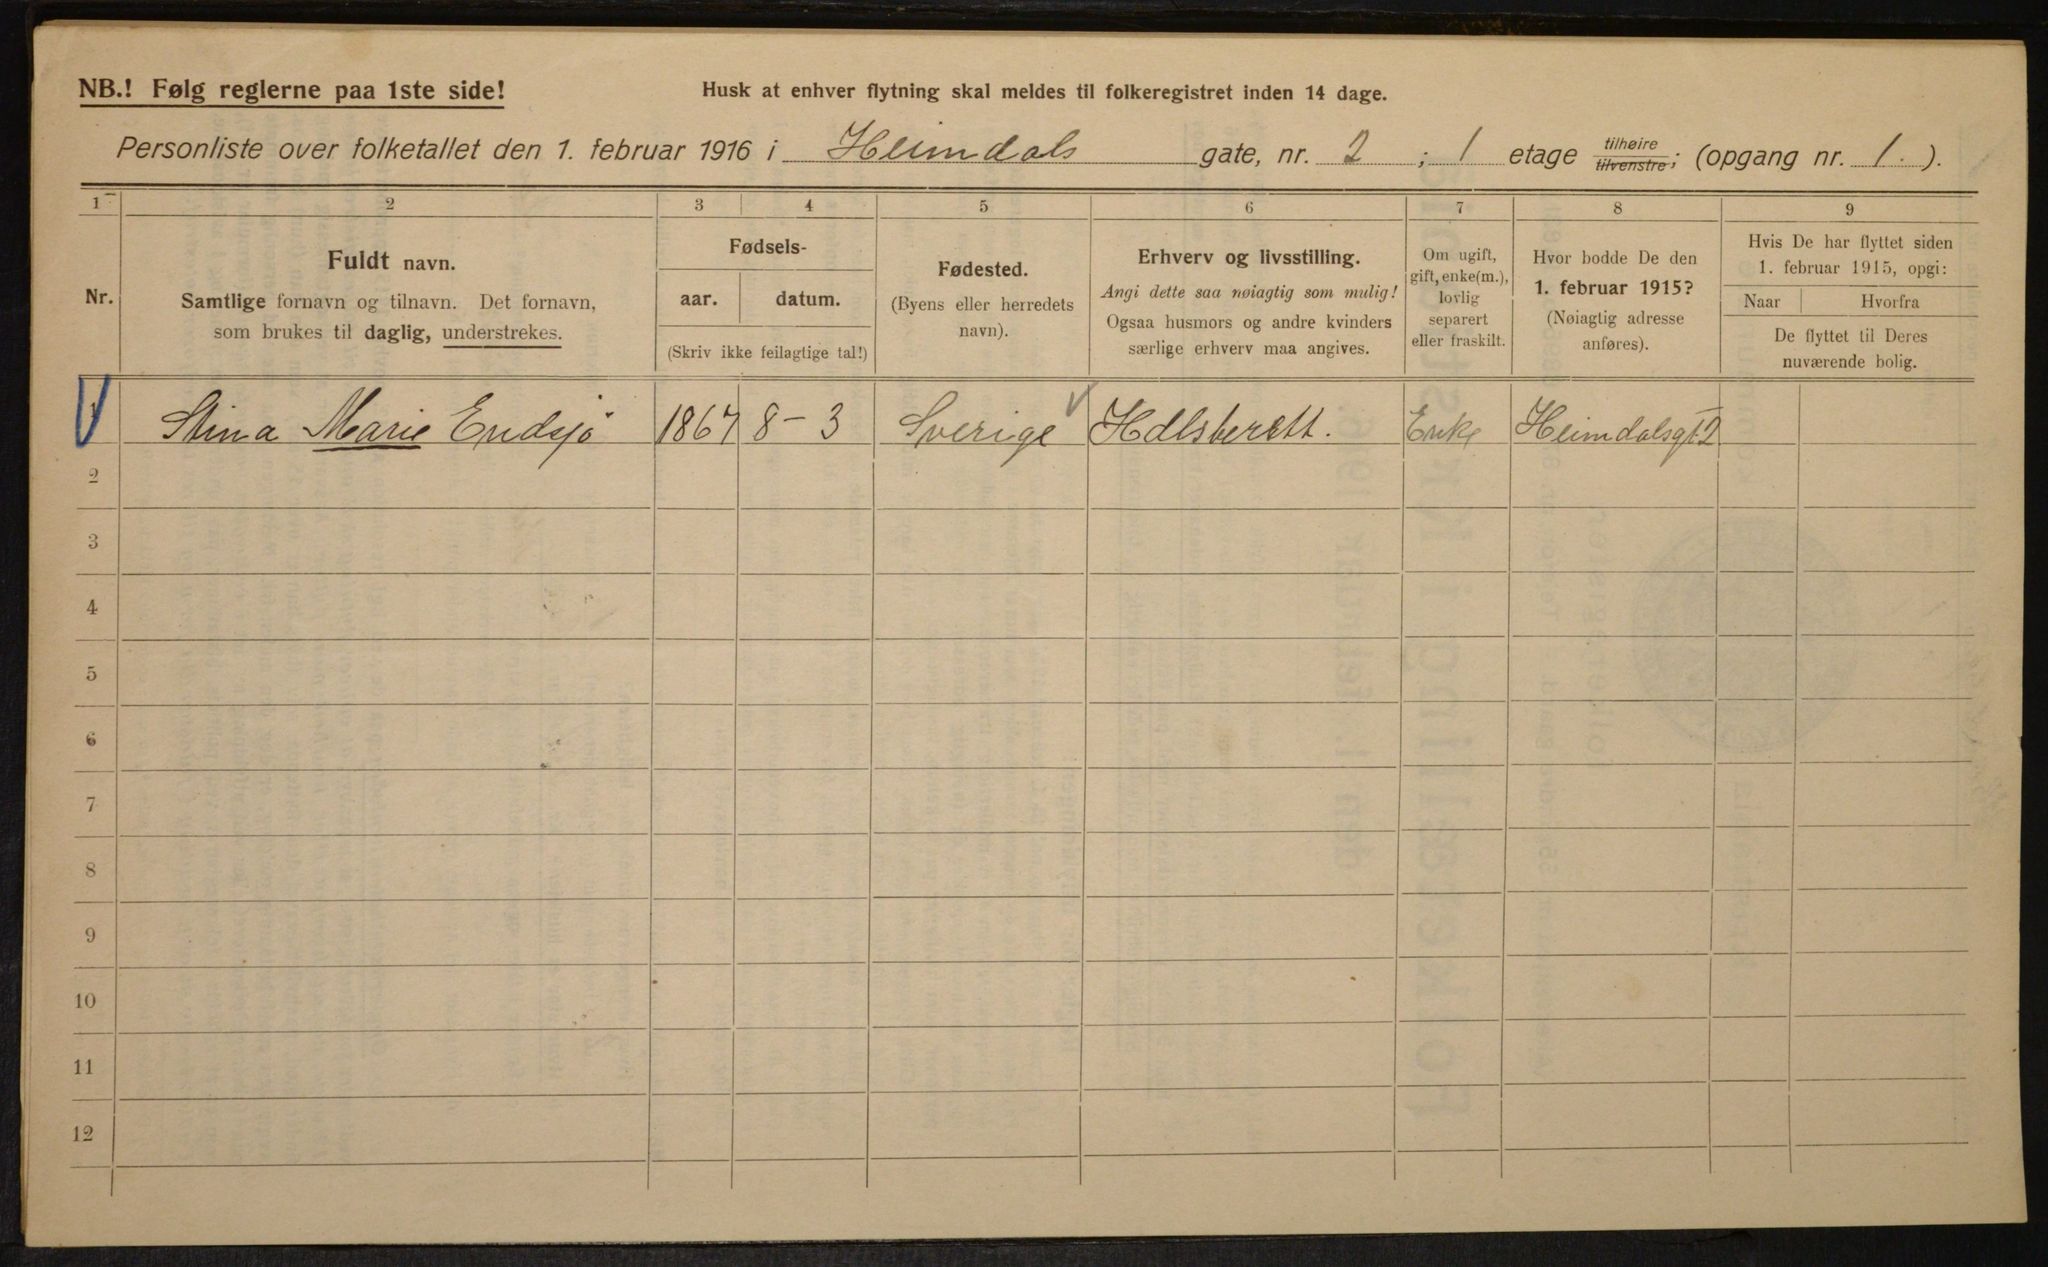 NB.! Følg reglerne paa 1ste side!
Husk at enhver flytning skal meldes til folkeregistret inden 14 dage.
Personliste over folketallet den 1. februar 1916 i Heimdals gate, nr. 2 ; 1 etage tilhøire tilvenstre; (opgang nr. 1. ).
1 2 3 4 5 6 7 8 9
Nr.
Fuldt navn.
Samtlige fornavn og tilnavn. Det fornavn,
som brukes til daglig, understrekes.
Fødsels-
aar. datum.
(Skriv ikke feilagtige tal!)
Fødested.
(Byens eller herredets
navn).
Erhverv og livsstilling.
Angi dette saa nøiagtig som mulig!
Ogsaa husmors og andre kvinders
særlige erhverv maa angives.
Om ugift,
gift, enke(m.),
lovlig
separert
eller fraskilt.
Hvor bodde De den
1. februar 1915?
(Nøiagtig adresse
anføres).
Hvis De har flyttet siden
1. februar 1915, opgi:
Naar Hvorfra
De flyttet til Deres
nuværende bolig.
1 Stina Marie Endsjö 1867 8-3 Sverige Hdlsberett. Enke Heimdalsgt. 2
2
3
4
5
6
7
8
9
10
11
12